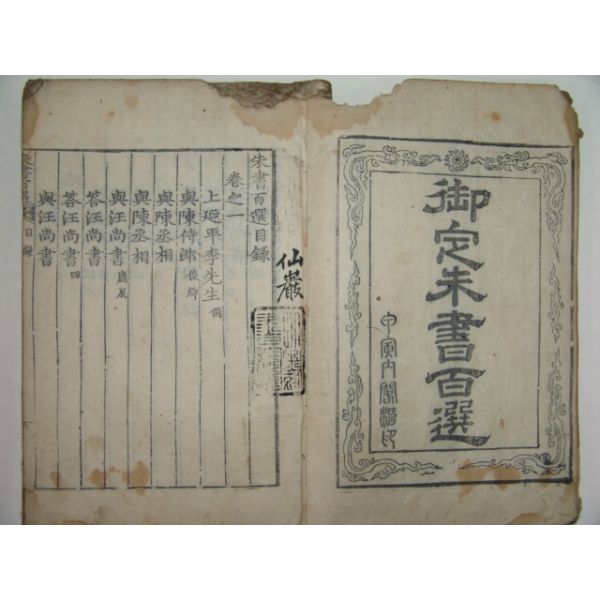 御定朱書百選
甲寅內閣活印
仙巖
朱書百選目錄
卷之一
上延平李先生侗
與陳侍郎俊卿
與陳丞相
與陳丞相
與汪尚書應辰
答汪尚書
答汪尚書四
與汪尚書
朱書百選 目錄